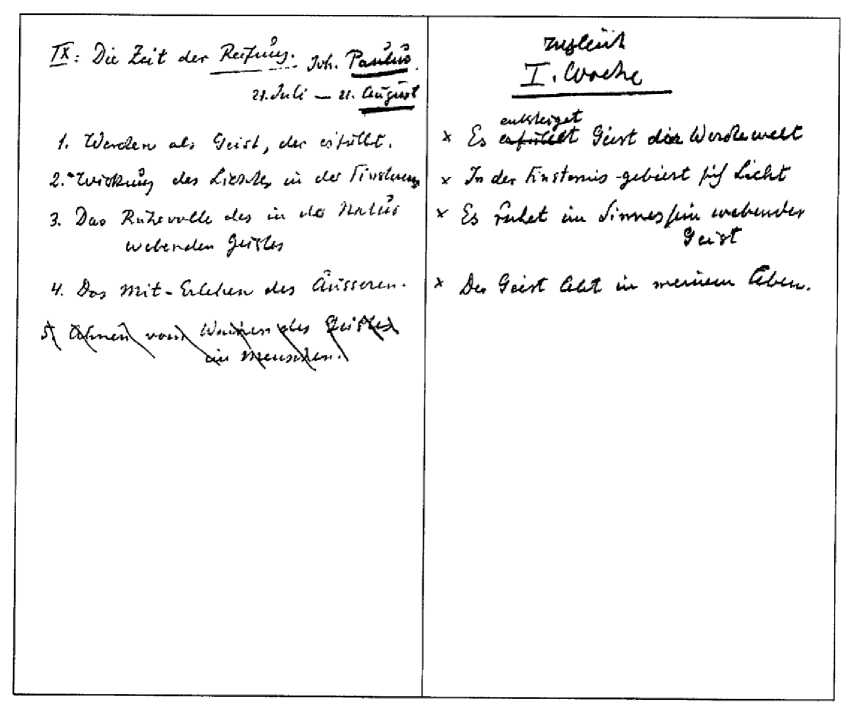 IX: Die Zeit der Reifung. Joh. Paulus.
21. Juli — 21. August
1. Werden als Geist, der erfüllt.
2. Wirkung des Lichtes in der Finsternis
3. Das Ruhevolle des in der Natur
webenden Geistes
4. Das Mit-Erleben des Äusseren.
5. Ahnen vom des Geistes
im Menschen.
zugleich
I. Woche
entsteiget
× Es erfüllt Geist der Werdewelt
× In der Finsternis gebiert sich Licht
× Es ruhet im Sinnessein webender
Geist
× Der Geist lebt in meinem Leben.